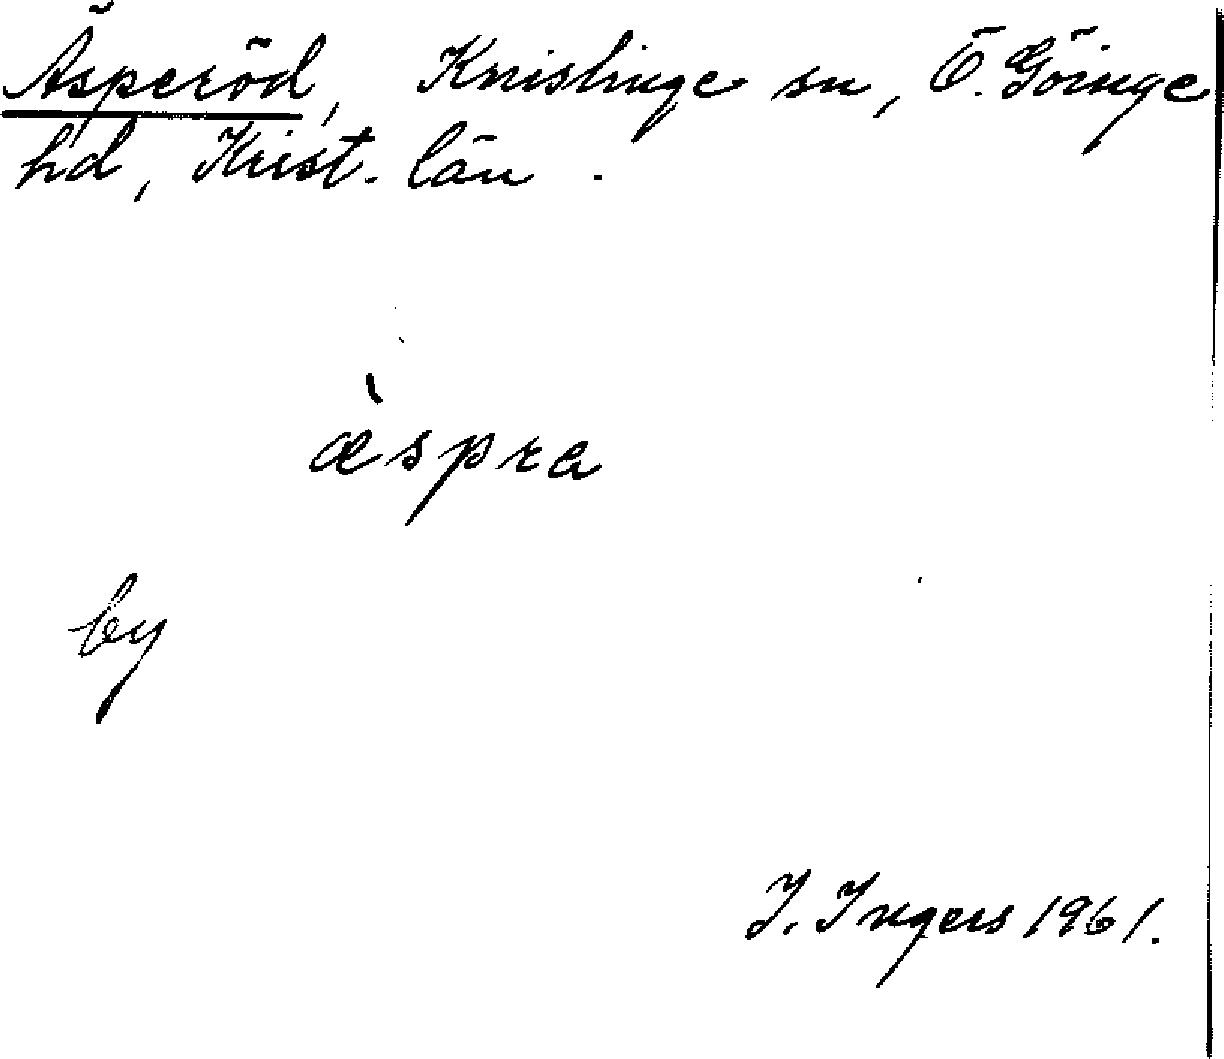 Äsperöd, Knislinge sn, Ö. Göinge
hd, Krist. län.
æ̀spra
by
I. Ingers 1961.